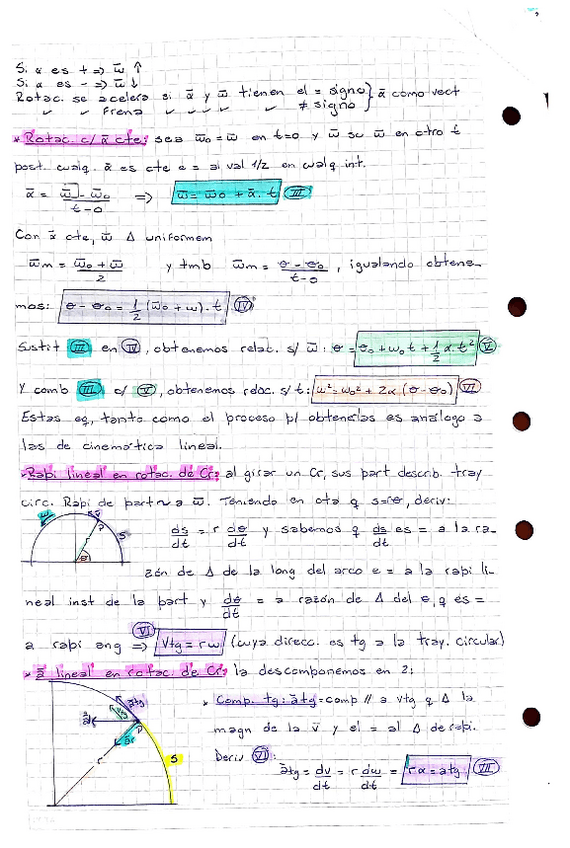 Si α es + => ω̄ ↑
Si α es - => ω̄ ↓
Rotac. se acelera si ᾱ y ω̄ tienen el = signo } ᾱ como vect
✓ ✓ Frena ✓ ✓ ✓ ✓ ✓ ≠ signo
* Rotac. c/ ᾱ cte: sea ω̄0 = ω̄ en t=0 y ω̄ su ω̄ en otro t
post. cualq. ᾱ es cte e = al val 1/2 en cualq int.
ᾱ = (ω̄ - ω̄0)/(t-0) => ω̄ = ω̄0 + ᾱ. t III
Con ᾱ cte, ω̄ Δ uniformem
ω̄m = (ω̄0 + ω̄)/2 y tmb ω̄m = (θ - θ0)/(t-0), igualando obtene-
mos: θ - θ0 = 1/2 (ω̄0 + ω). t IV
Sustit III en IV, obtenemos relac. s/ ω̄: θ = θ0 + ω0 t + 1/2 α.t² V
Y comb III c/ V, obtenemos relac. s/ t: ω² = ω0² + 2α (θ - θ0) VI
Estas eq, tanto como el proceso p/ obtenerlas es análogo a
las de cinemática lineal.
* Rapi lineal en rotac. de Cr: al girar un Cr, sus part describ. tray
circ. Rapi de part ~ a ω̄. Teniendo en cta q s=rθ, deriv:
ω v r S θ
ds/dt = r dθ/dt y sabemos q ds/dt es = a la ra-
zón de Δ de la long del arco e = a la rapi li-
neal inst de la part y dθ/dt = a razón de Δ del θ, q es =
a rapi ang => VI Vtg = rω (cuya direcc. es tg a la tray. circular)
* ā lineal en rotac. de Cr: la descomponemos en 2:
ātg ā P r S
* Comp. tg: ātg = comp // a vtg q Δ la
magn de la v̄ y el = al Δ de rapi.
Deriv VI:
ātg = dv/dt = r dω/dt = rα = atg VII